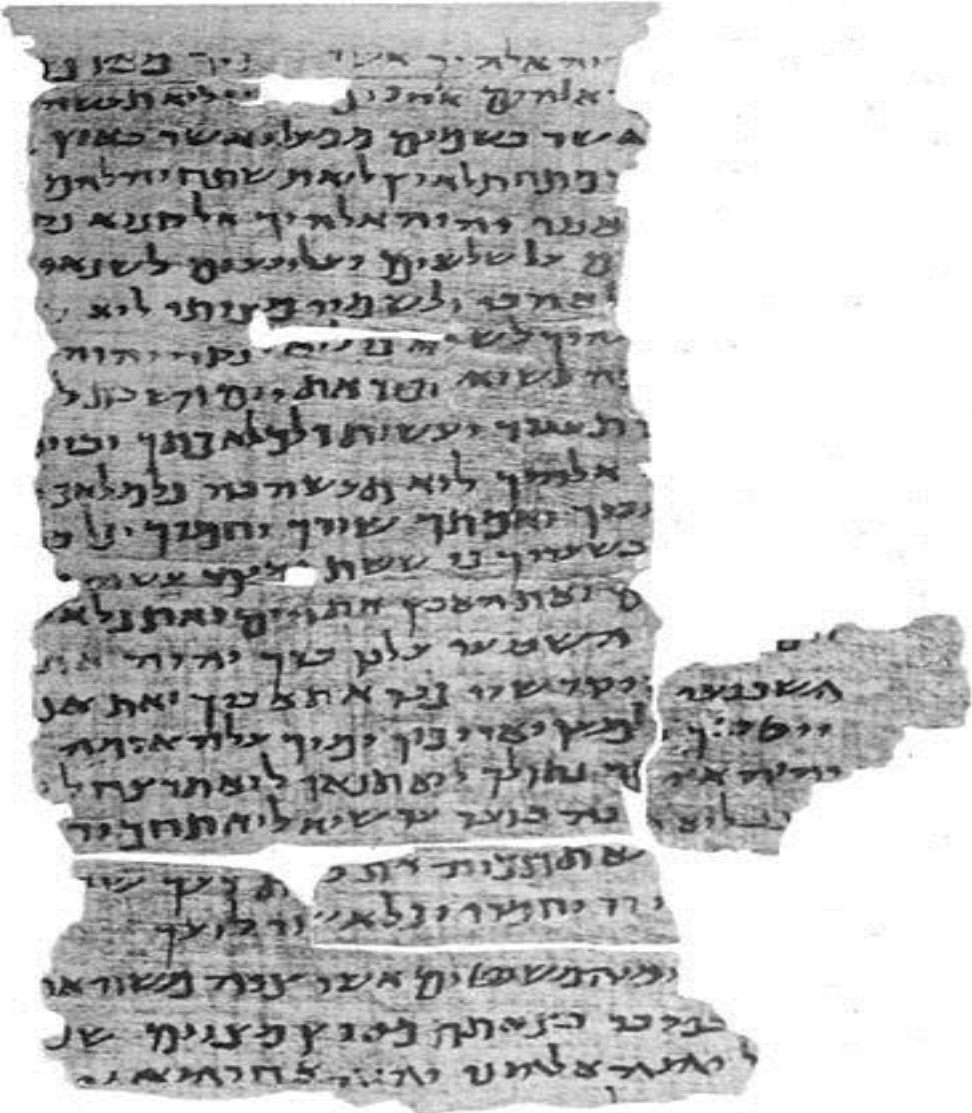 יהוה אלהיך אשר
אלהים אחרים לוא תעשה
אשר בשמים ממעל ואשר בארץ
מתחת לארץ לוא תשתחוה להם
יהוה אלהיך אל קנוא
על שלשים ועל רבעים לשנאי
לאהבי ולשמרי מצותי לוא
לשוא כי לוא ינקה יהוה
לשוא זכור את יום השבת ל
תעבוד ועשית כל מלאכתך וביום
אלהיך לוא תעשה בה כל מלאכה
עבדך ואמתך שורך וחמרך וכל ב
בשעריך כי ששת ימים עשה
ואת הארץ את הים ואת כל א
השביעי על כן ברך יהוה את
השביעי ויקדשו כבד את אביך ואת אמ
ייטב לך ולמען יאריכון ימיך על האדמה
יהוה אלהיך נתן לך לוא תנאף לוא תרצח לו
לוא ברעך עד שוא לוא תחמוד
את רעך שד
וחמרו וכל אשר לרעך
והמשפטים אשר צוה משה את
במדבר בצאתם מארץ מצרים שמ
יהוה אלהינו יהוה אחד הוא